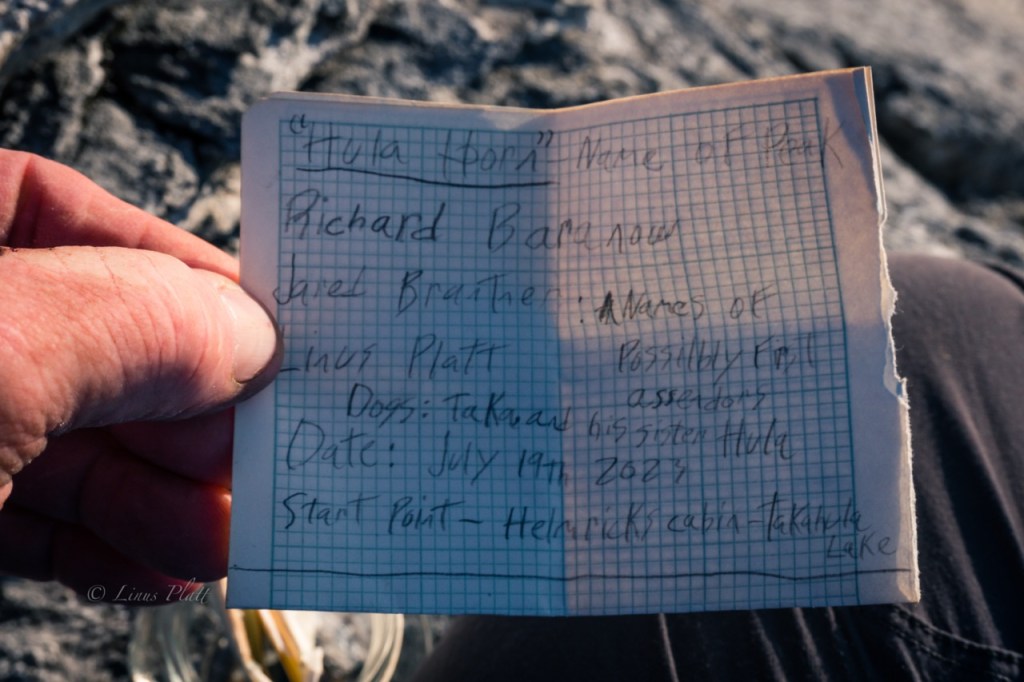 "Hula Horn" - Name of Peak
Richard Baranow
Jared Branther : Names of
Linus Platt Possibly First
assendors
Dogs: Taka and his sister Hula
Date: July 19th 2023
Start Point - Helmricks cabin - Takahula
Lake
© Linus Platt